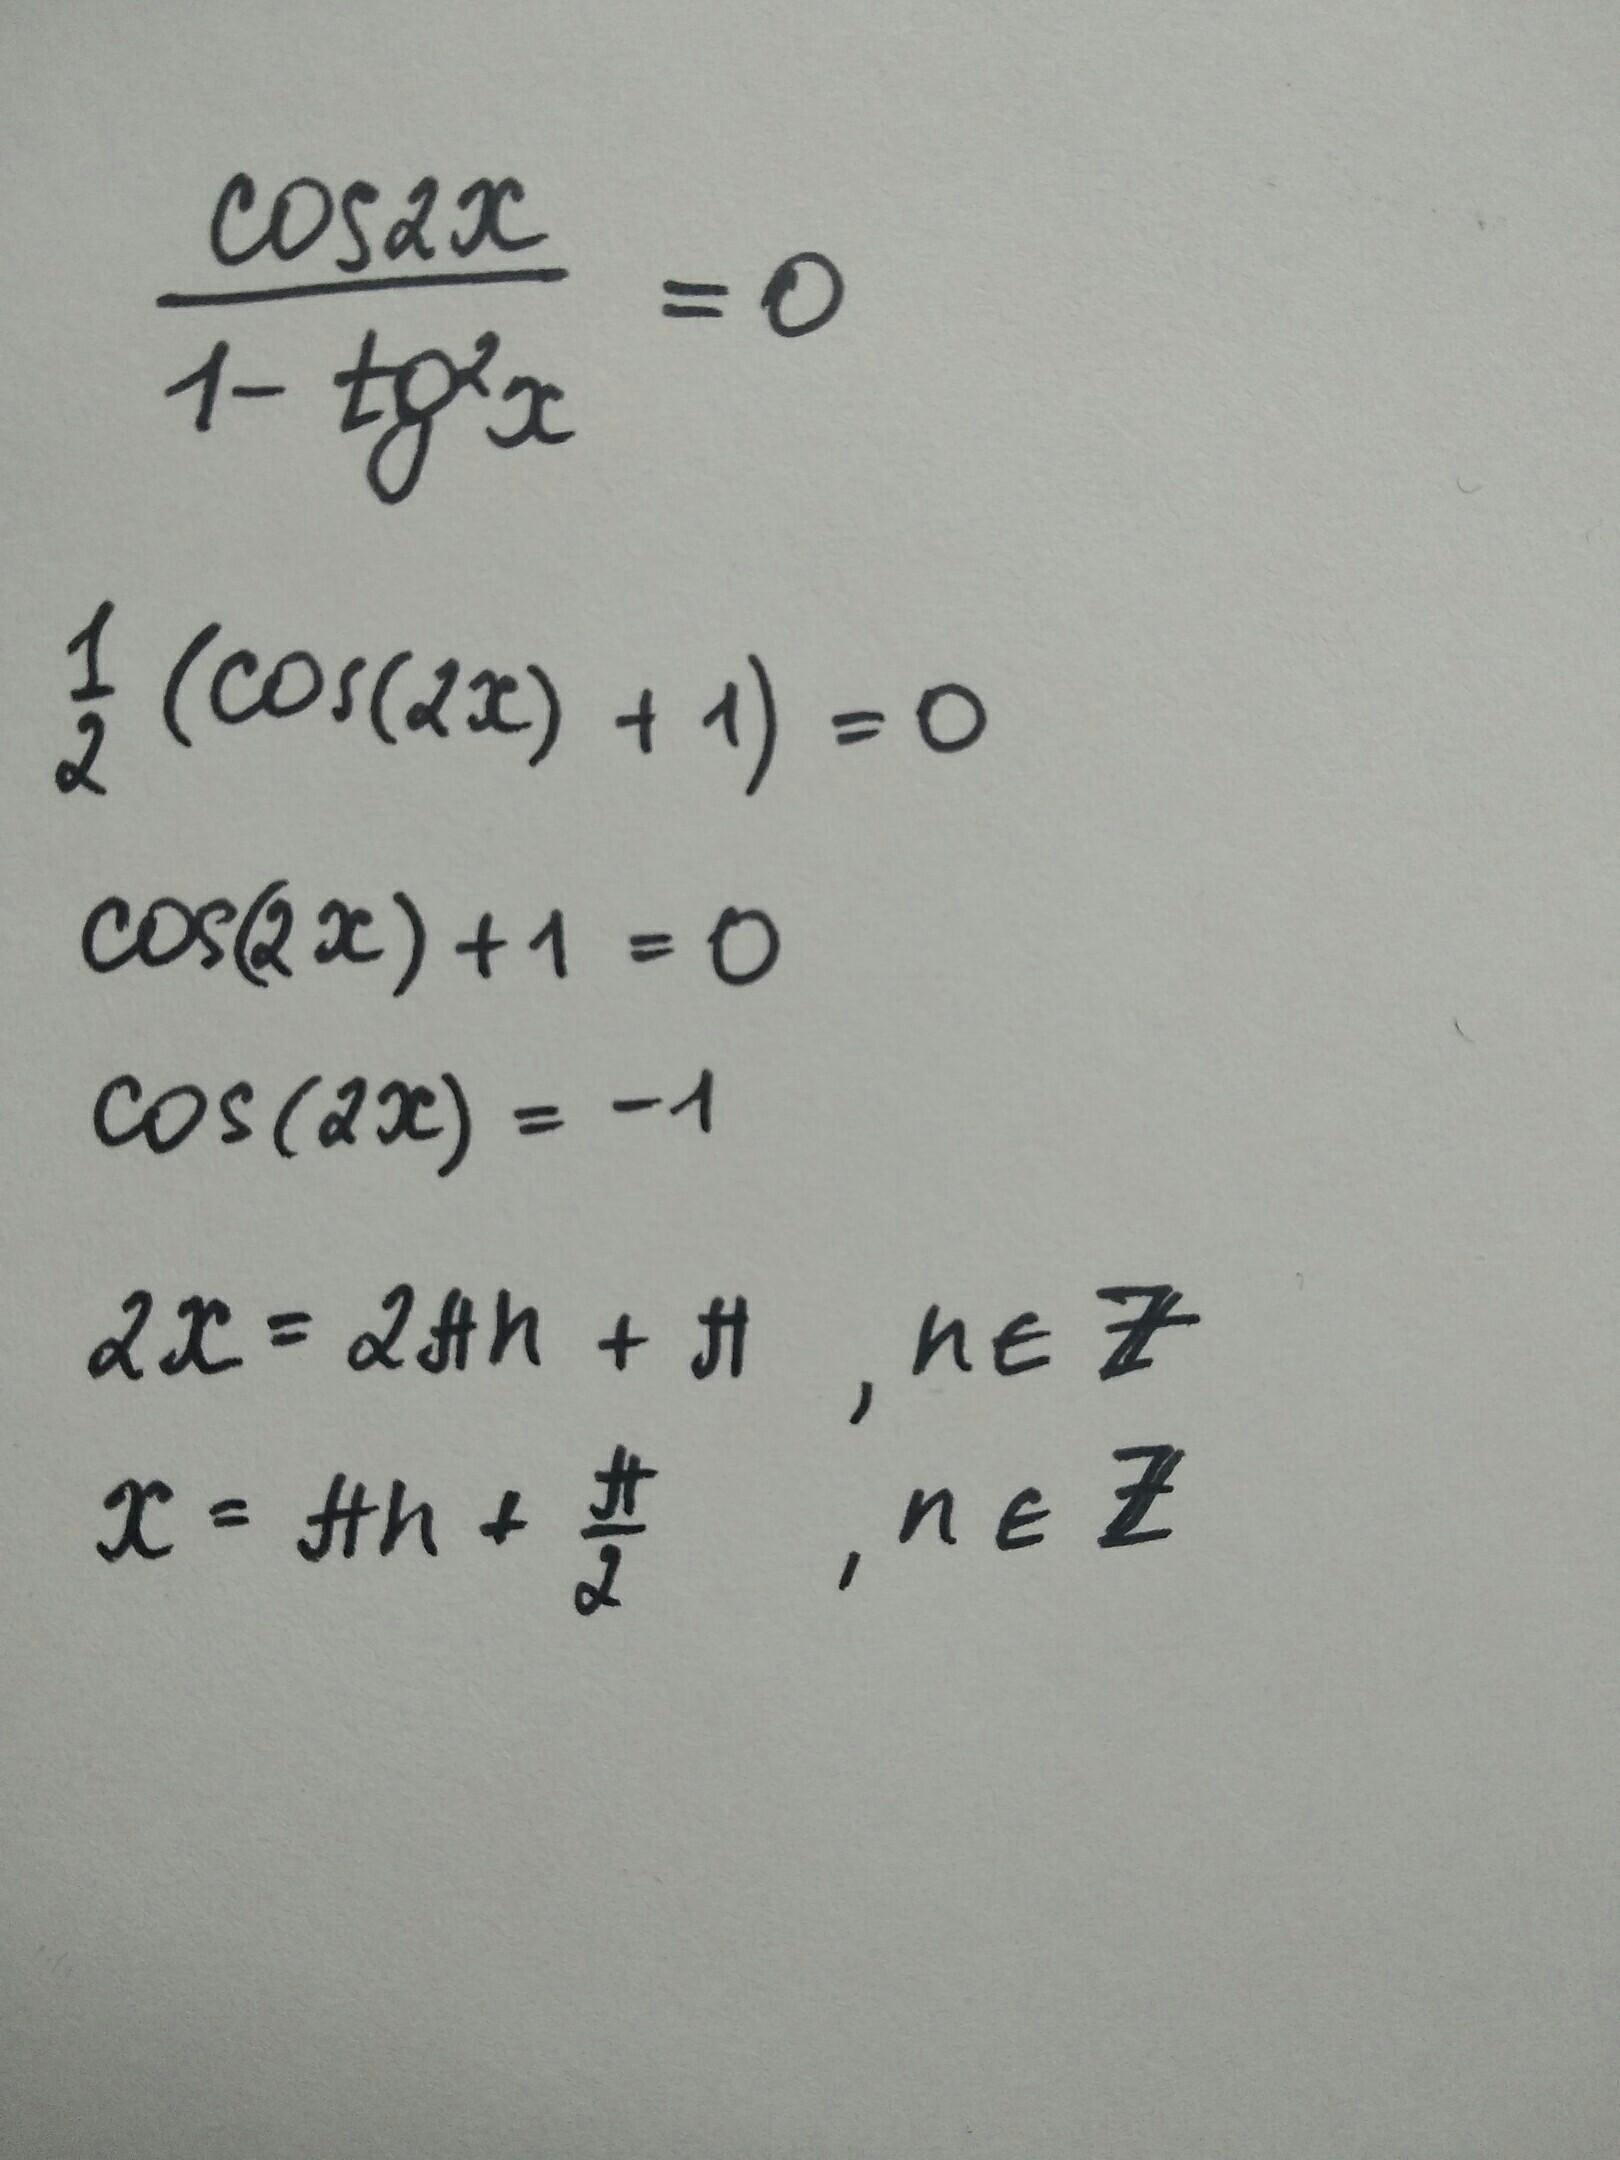 cos2x / 1 - tg²x = 0
1/2 (cos(2x) + 1) = 0
cos(2x) + 1 = 0
cos(2x) = -1
2x = 2πn + π , n ∈ ℤ
x = πn + π/2 , n ∈ ℤ